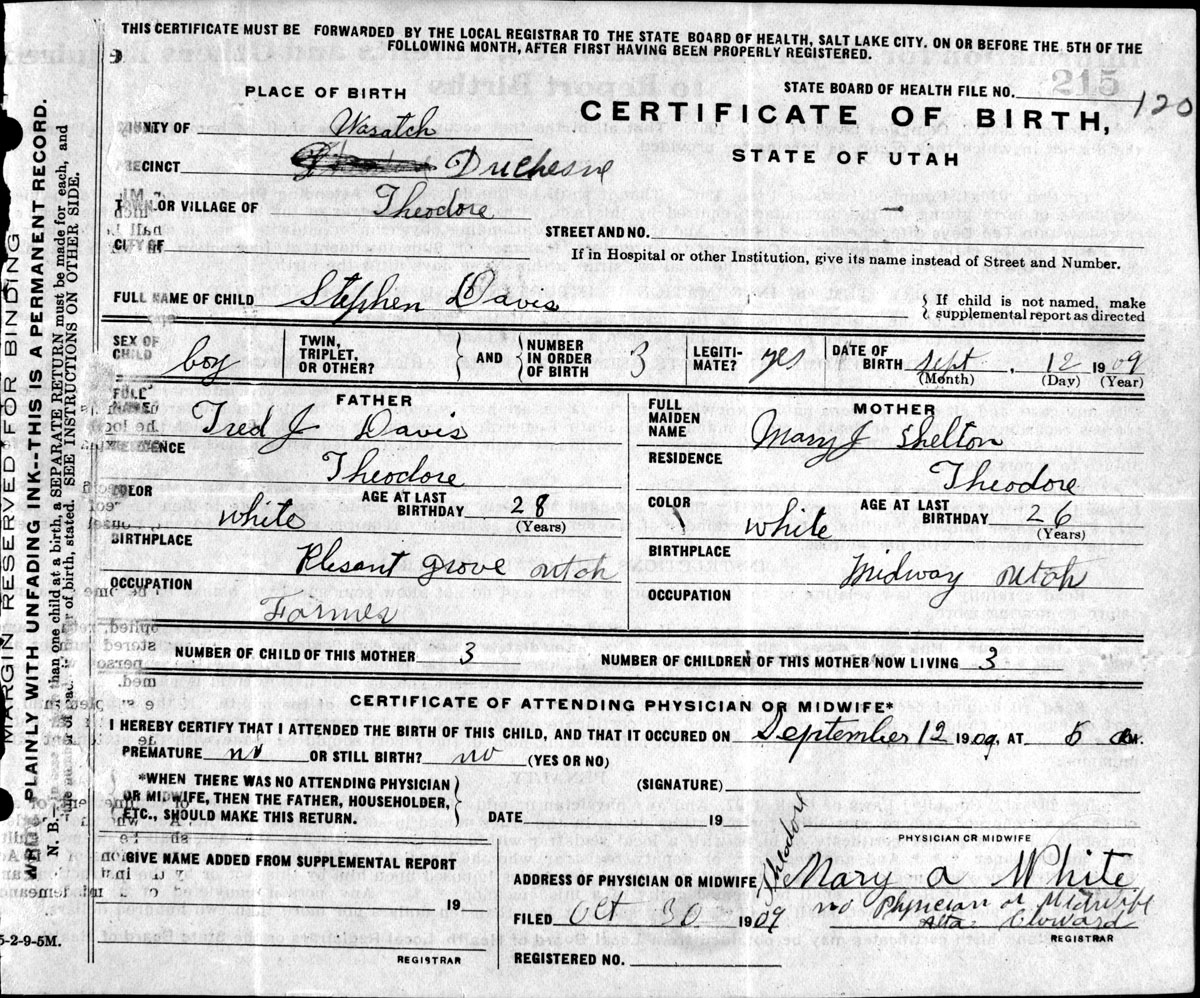 THIS CERTIFICATE MUST BE FORWARDED BY THE LOCAL REGISTRAR TO THE STATE BOARD OF HEALTH, SALT LAKE CITY, ON OR BEFORE THE 5TH OF THE
FOLLOWING MONTH, AFTER FIRST HAVING BEEN PROPERLY REGISTERED.
215
STATE BOARD OF HEALTH FILE NO. 120
PLACE OF BIRTH
CERTIFICATE OF BIRTH,
STATE OF UTAH
COUNTY OF Wasatch
PRECINCT Duchesne
TOWN OR VILLAGE OF Theodore
STREET AND NO.
CITY OF
If in Hospital or other Institution, give its name instead of Street and Number.
FULL NAME OF CHILD Stephen Davis
If child is not named, make
supplemental report as directed
SEX OF CHILD boy
TWIN, TRIPLET, OR OTHER?
AND
NUMBER IN ORDER OF BIRTH 3
LEGITIMATE? yes
DATE OF BIRTH Sept, 12 1909
(Month) (Day) (Year)
FATHER
FULL NAME Fred J Davis
RESIDENCE Theodore
COLOR white
AGE AT LAST BIRTHDAY 28
(Years)
BIRTHPLACE Plesant Grove utah
OCCUPATION Farmer
MOTHER
FULL MAIDEN NAME Mary J Shelton
RESIDENCE Theodore
COLOR white
AGE AT LAST BIRTHDAY 26
(Years)
BIRTHPLACE Midway utah
OCCUPATION
NUMBER OF CHILD OF THIS MOTHER 3 NUMBER OF CHILDREN OF THIS MOTHER NOW LIVING 3
CERTIFICATE OF ATTENDING PHYSICIAN OR MIDWIFE*
I HEREBY CERTIFY THAT I ATTENDED THE BIRTH OF THIS CHILD, AND THAT IT OCCURED ON September 12 1909, AT 5 a M.
PREMATURE no OR STILL BIRTH? no (YES OR NO)
*WHEN THERE WAS NO ATTENDING PHYSICIAN
OR MIDWIFE, THEN THE FATHER, HOUSEHOLDER,
ETC., SHOULD MAKE THIS RETURN.
(SIGNATURE)
DATE 19
PHYSICIAN OR MIDWIFE
GIVE NAME ADDED FROM SUPPLEMENTAL REPORT
19
REGISTRAR
ADDRESS OF PHYSICIAN OR MIDWIFE Theodore
Mary a White
no Physician or Midwife
FILED Oct 30 1909
REGISTRAR
REGISTERED NO.
5-2-9-5M.
MARGIN RESERVED FOR BINDING
WRITE PLAINLY WITH UNFADING INK--THIS IS A PERMANENT RECORD.
N. B.—In case of more than one child at a birth, a SEPARATE RETURN must be made for each, and
the number of each, in order of birth, stated. SEE INSTRUCTIONS ON OTHER SIDE.